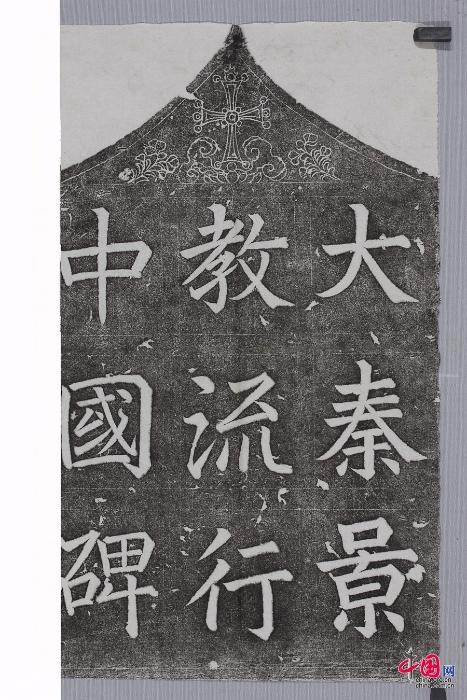 大秦景
教流行
中國碑
中国网
china.com.cn